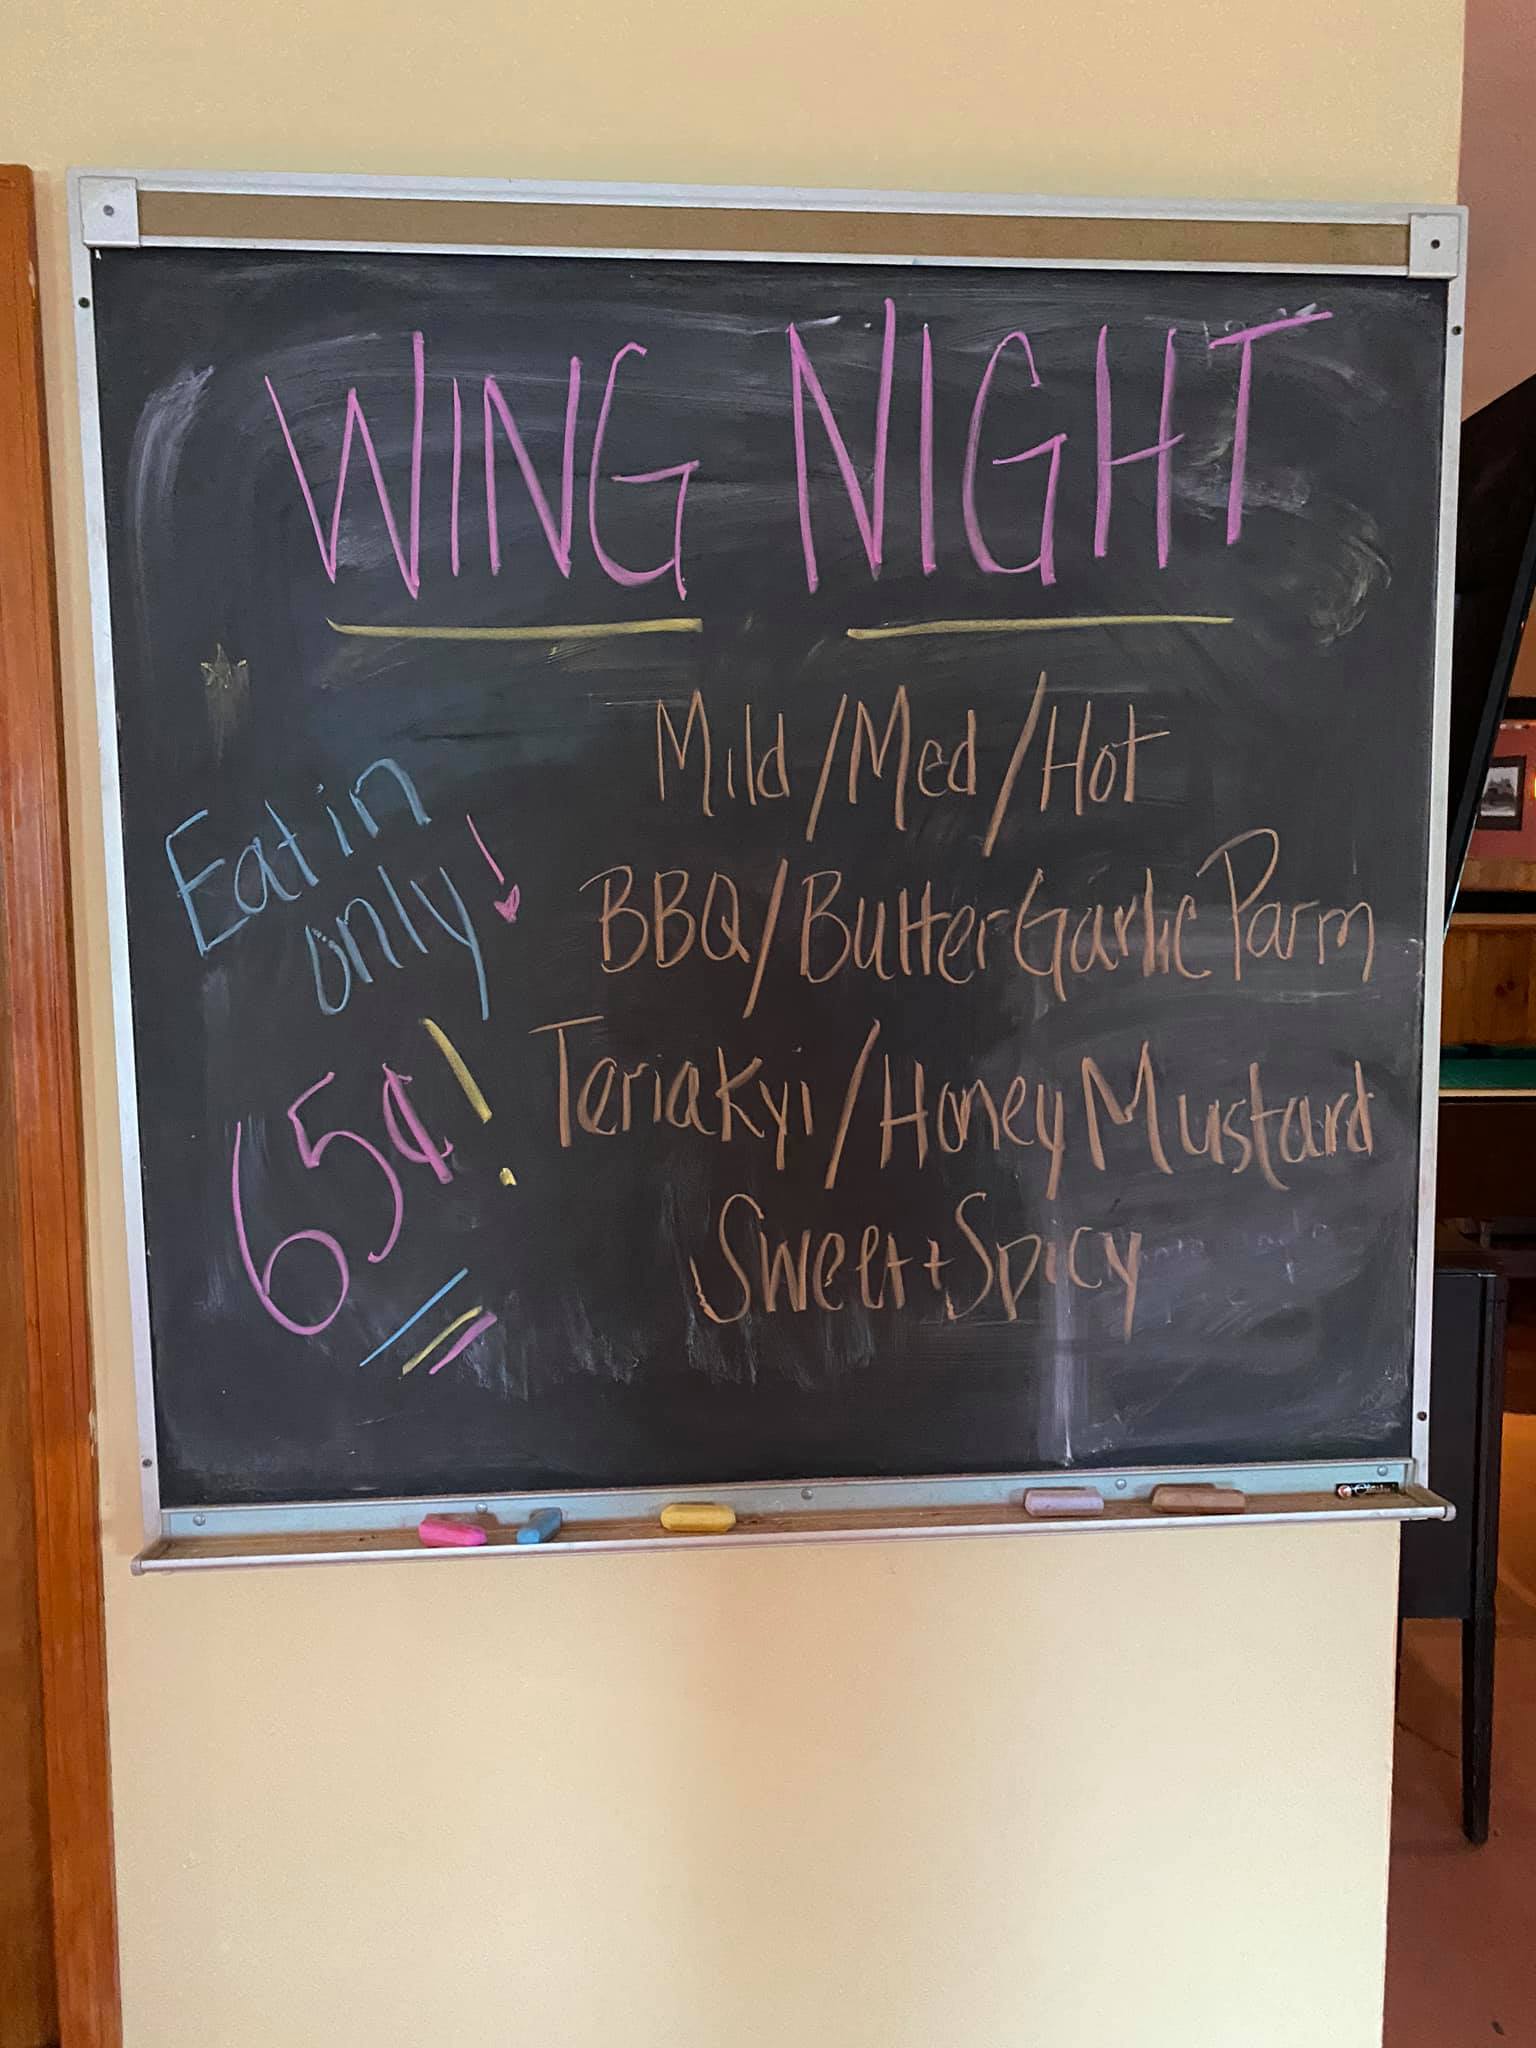 WING NIGHT
Mild/Med/Hot
BBQ/Butter Garlic Parm
Teriakyi/Honey Mustard
Sweet+Spicy
Eat in
only!
65¢!